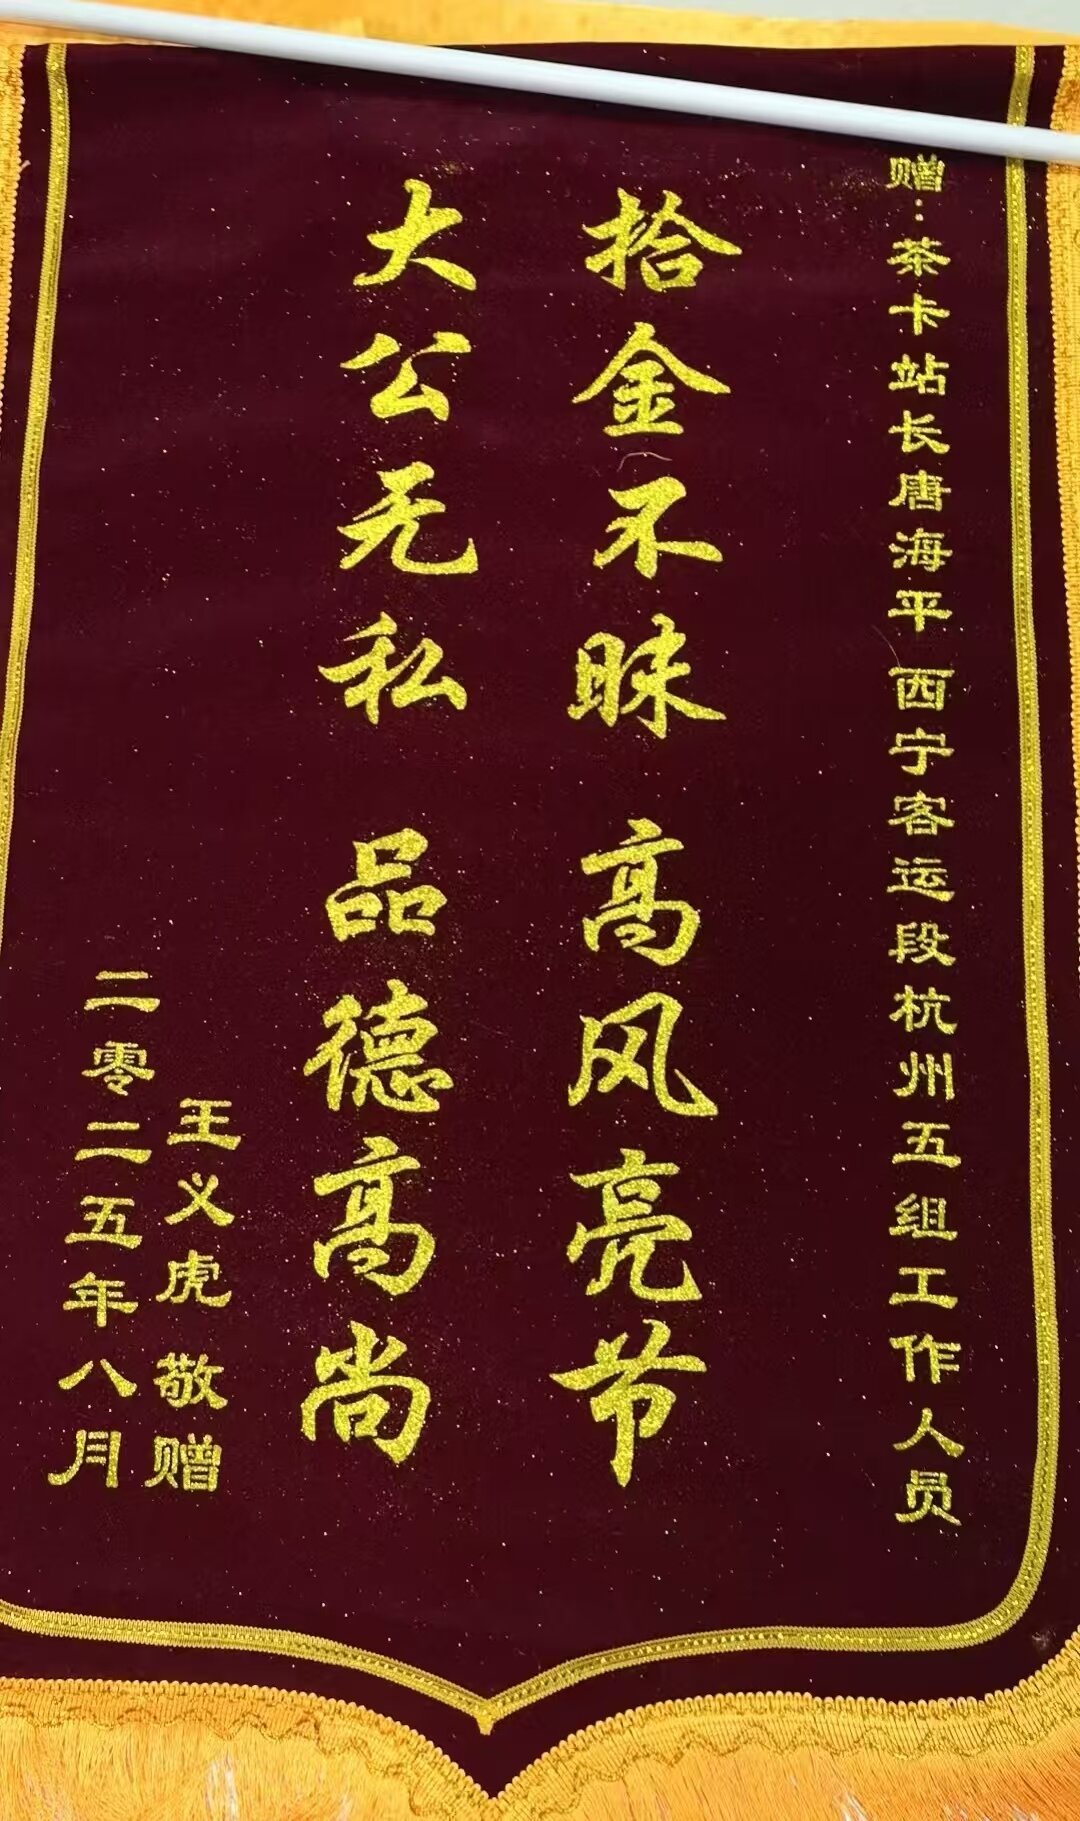 赠：茶卡站长唐海平 西宁客运段杭州五组工作人员
拾金不昧 高风亮节
大公无私 品德高尚
王义虎 敬赠
二零二五年八月